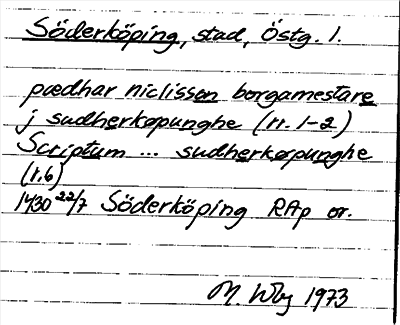 Söderköping, stad, Östg. l.
pædhar niclisson borgamestare
j sudherkøpunghe (rr. 1-2)
Scriptum ... sudherkøpunghe
(r.6)
1430 22/7 Söderköping RAp or.
M. Wbg 1973